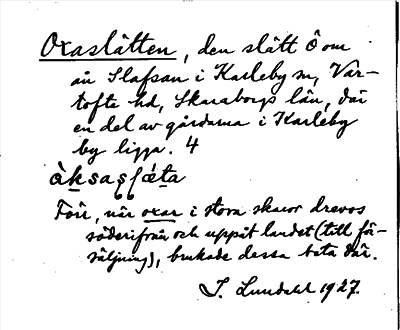 Oxaslätten, den slätt Ö om
ån Slafsan i Karleby sn, Var-
tofte hd, Skaraborgs län, där
en del av gårdarna i Karleby
by ligga. 4
àksasɭǽta
Förr, när oxar i stora skaror drevos
söderifrån och uppåt landet (till för-
säljning), brukade dessa beta där.
S. Lundahl 1927.